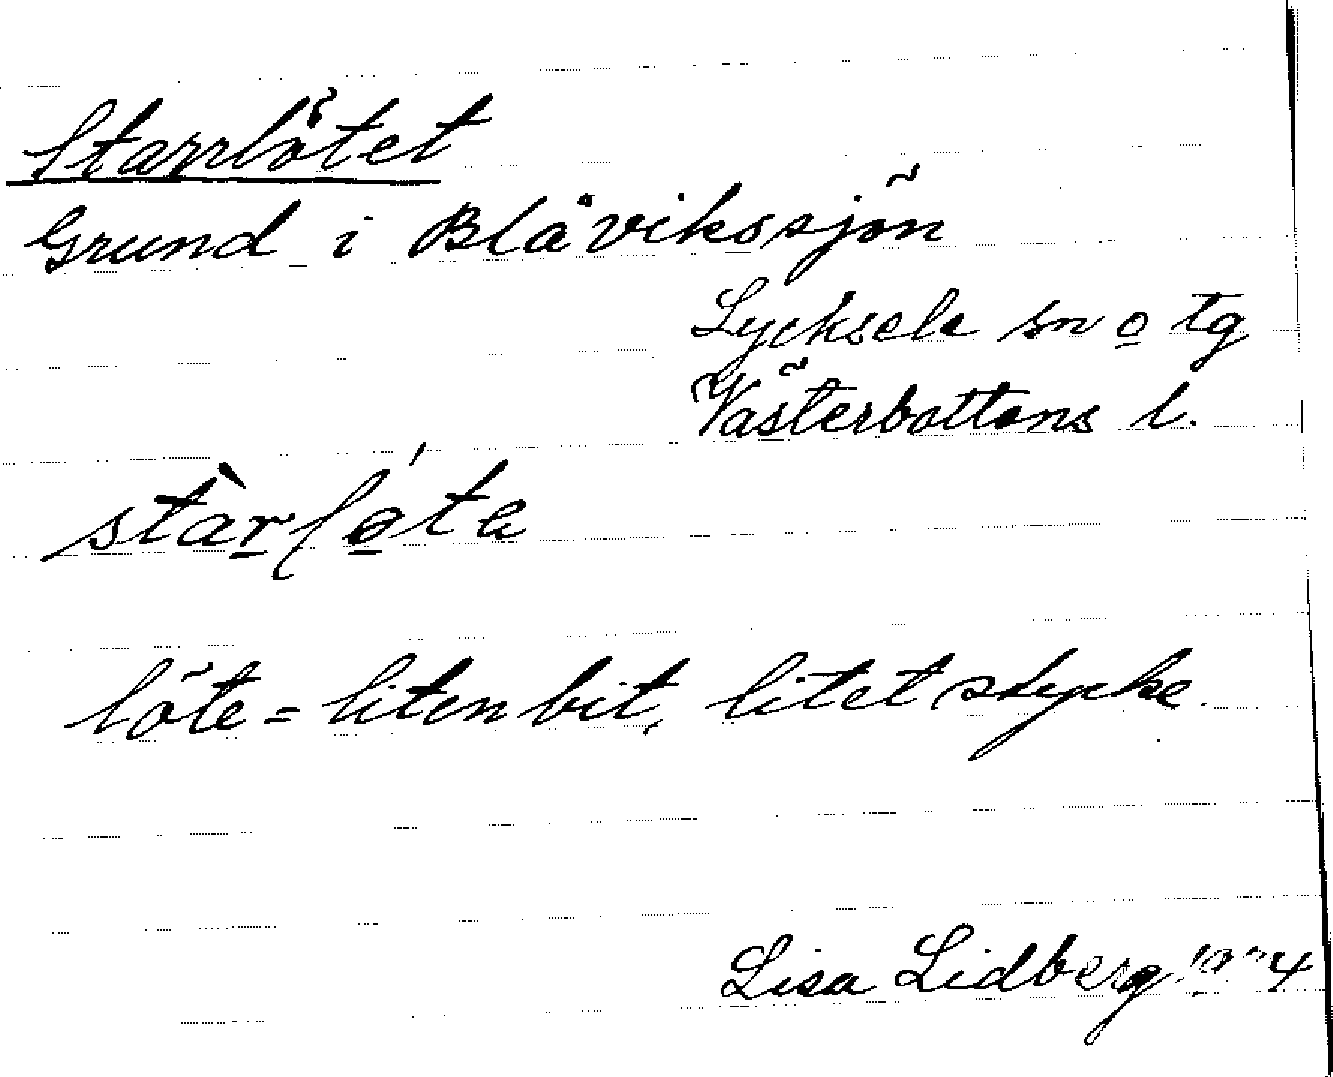 Starrlötet
Grund i Blåvikssjön
Lycksele sn o tg
Västerbottens l.
löte = liten bit, litet stycke.
Lisa Lidberg